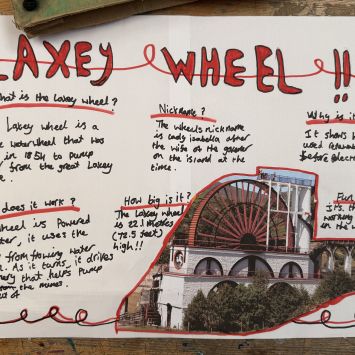 LAXEY WHEEL !!
hat is the Laxey Wheel?
Laxey wheel is a
waterwheel that was
in 1854 to pump
from the great Laxey
Nickname?
The wheels nickname
is lady isabella after
the wife of the governer
on the island at the
time.
Why is i
It shows h
used renewa
before elect
does it work?
wheel is Powered
ter, it uses the
from flowing water
. As it turns, it drives
ery that helps Pump
from the mines.
How big is it?
The Laxey wheel
is 22.1 metres
(72.5 feet)
high!!
Fu
It's th
workin
in the